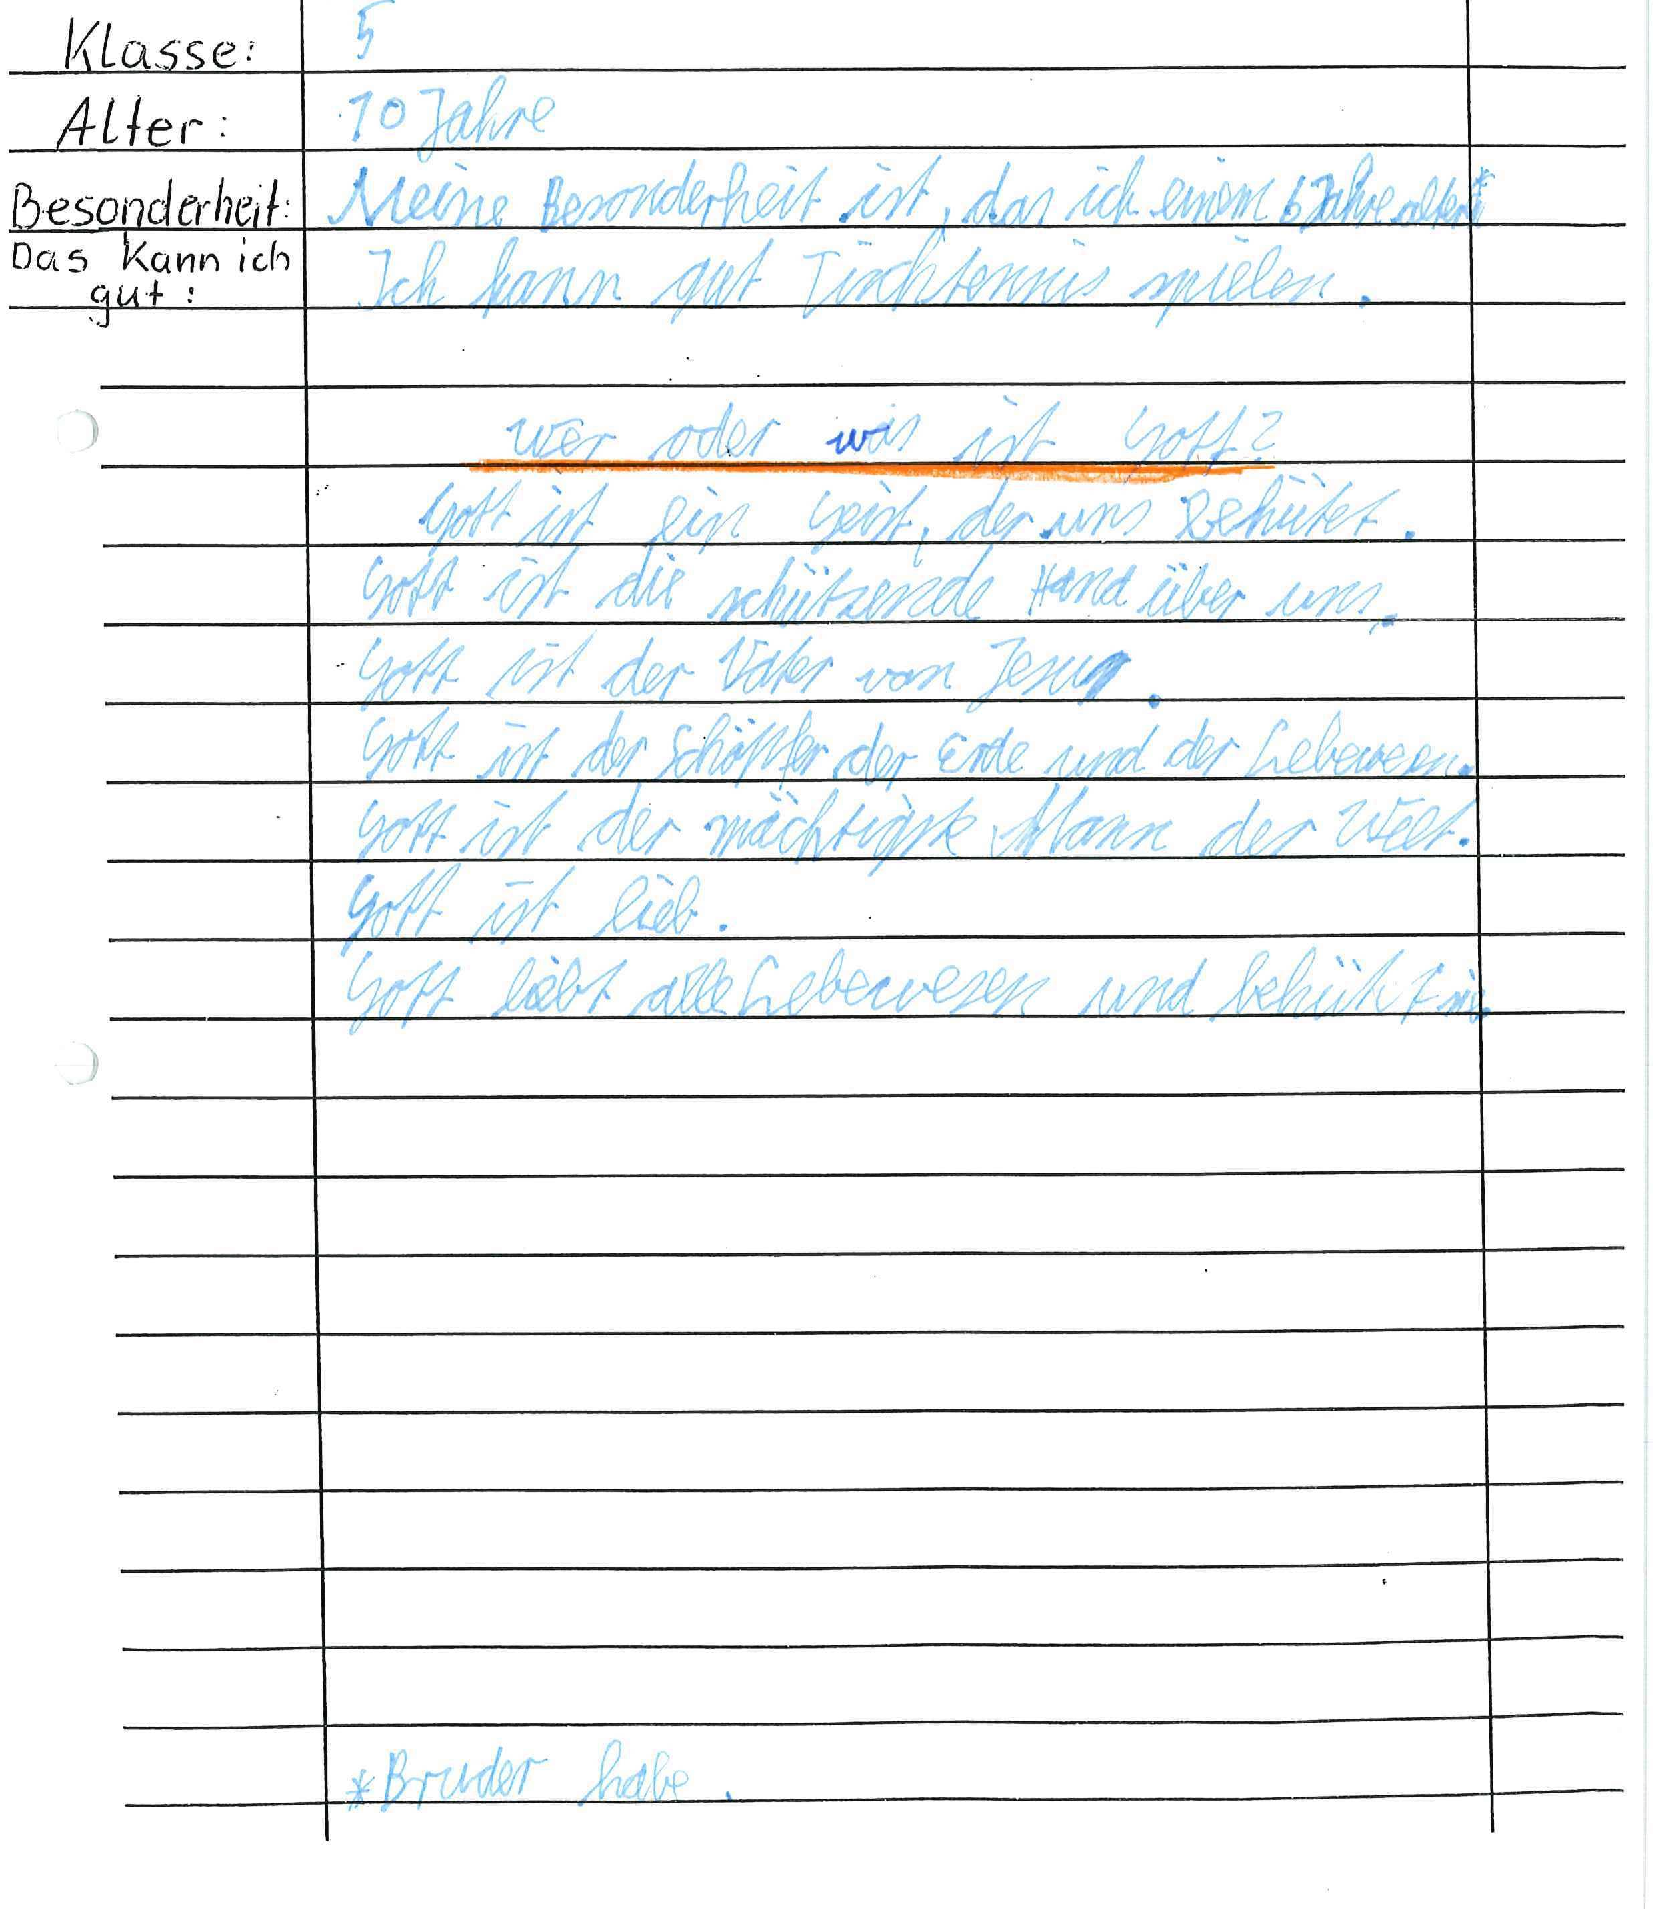 Klasse: 5
Alter: 10 Jahre
Besonderheit: Meine Besonderheit ist, das ich einem 6 Jahre alten*
Das kann ich gut: Ich kann gut Tischtennis spielen.
wer oder was ist Gott?
Gott ist ein Geist, der uns Behütet.
Gott ist die schützende Hand über uns.
Gott ist der Vater von Jesus.
Gott ist der Schöpfer der Erde und der Lebewesen.
Gott ist der mächtigste Mann der Welt.
Gott ist lieb.
Gott liebt alle Lebewesen und behütet sie.
*Bruder habe.